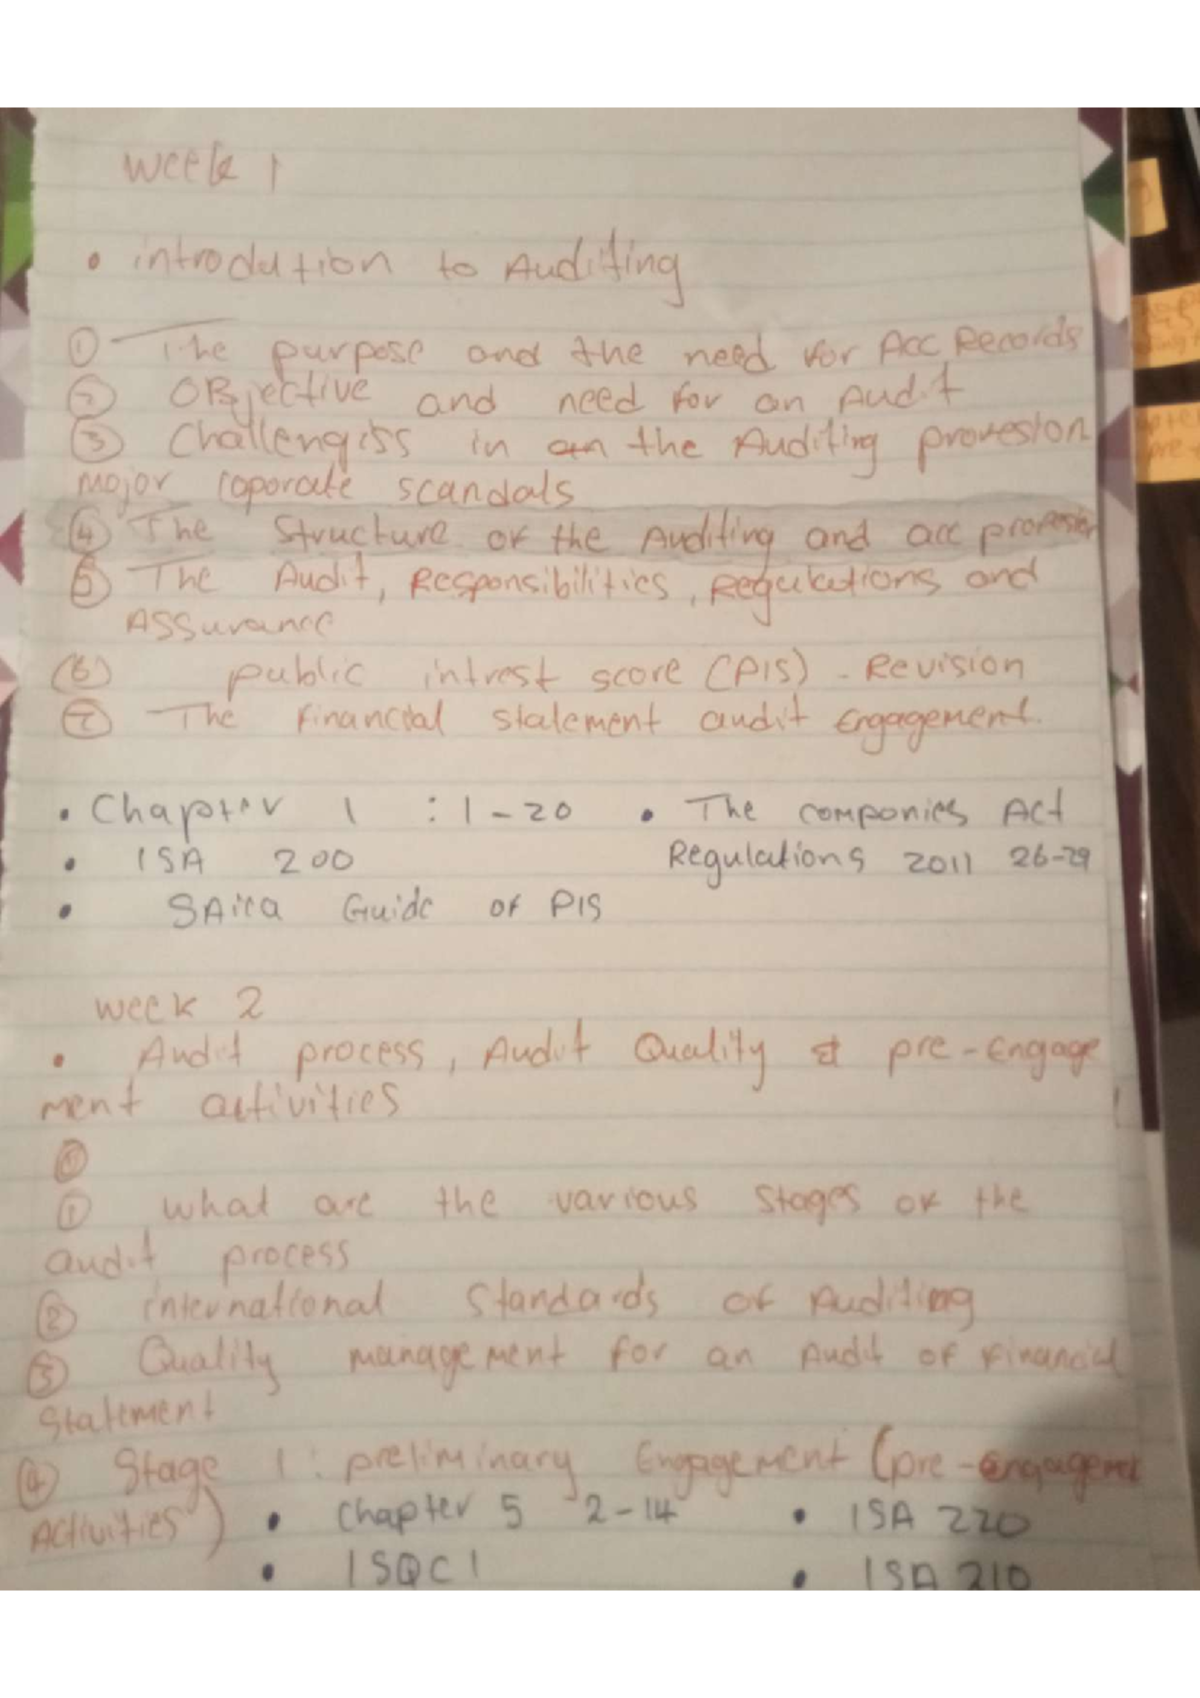 Week 1
• introdution to Auditing
① The purpose and the need for Acc Records
② OBjective and need for an Audit
③ Challengiss in the Auditing provesion
major coporate scandals
④ The Structure of the Auditing and acc profesion
⑤ The Audit, Responsibilities, Regulations and
Assurance
(6) public intrest score (PIS) - Revision
⑦ The Financial statement audit Engagement.
• Chapter 1 : 1-20 • The companies Act
• ISA 200 Regulations 2011 26-29
• SAica Guide of PIS
week 2
• Audit process, Audit Quality & pre-Engage
ment activities
① what are the various stages of the
audit process
② international Standards of Auditing
③ Quality management for an Audit of Financial
Statement
④ Stage 1: preliminary Engagement (pre-engagement
Activities) • Chapter 5 2-14 • ISA 220
• ISQC1 • ISA 210